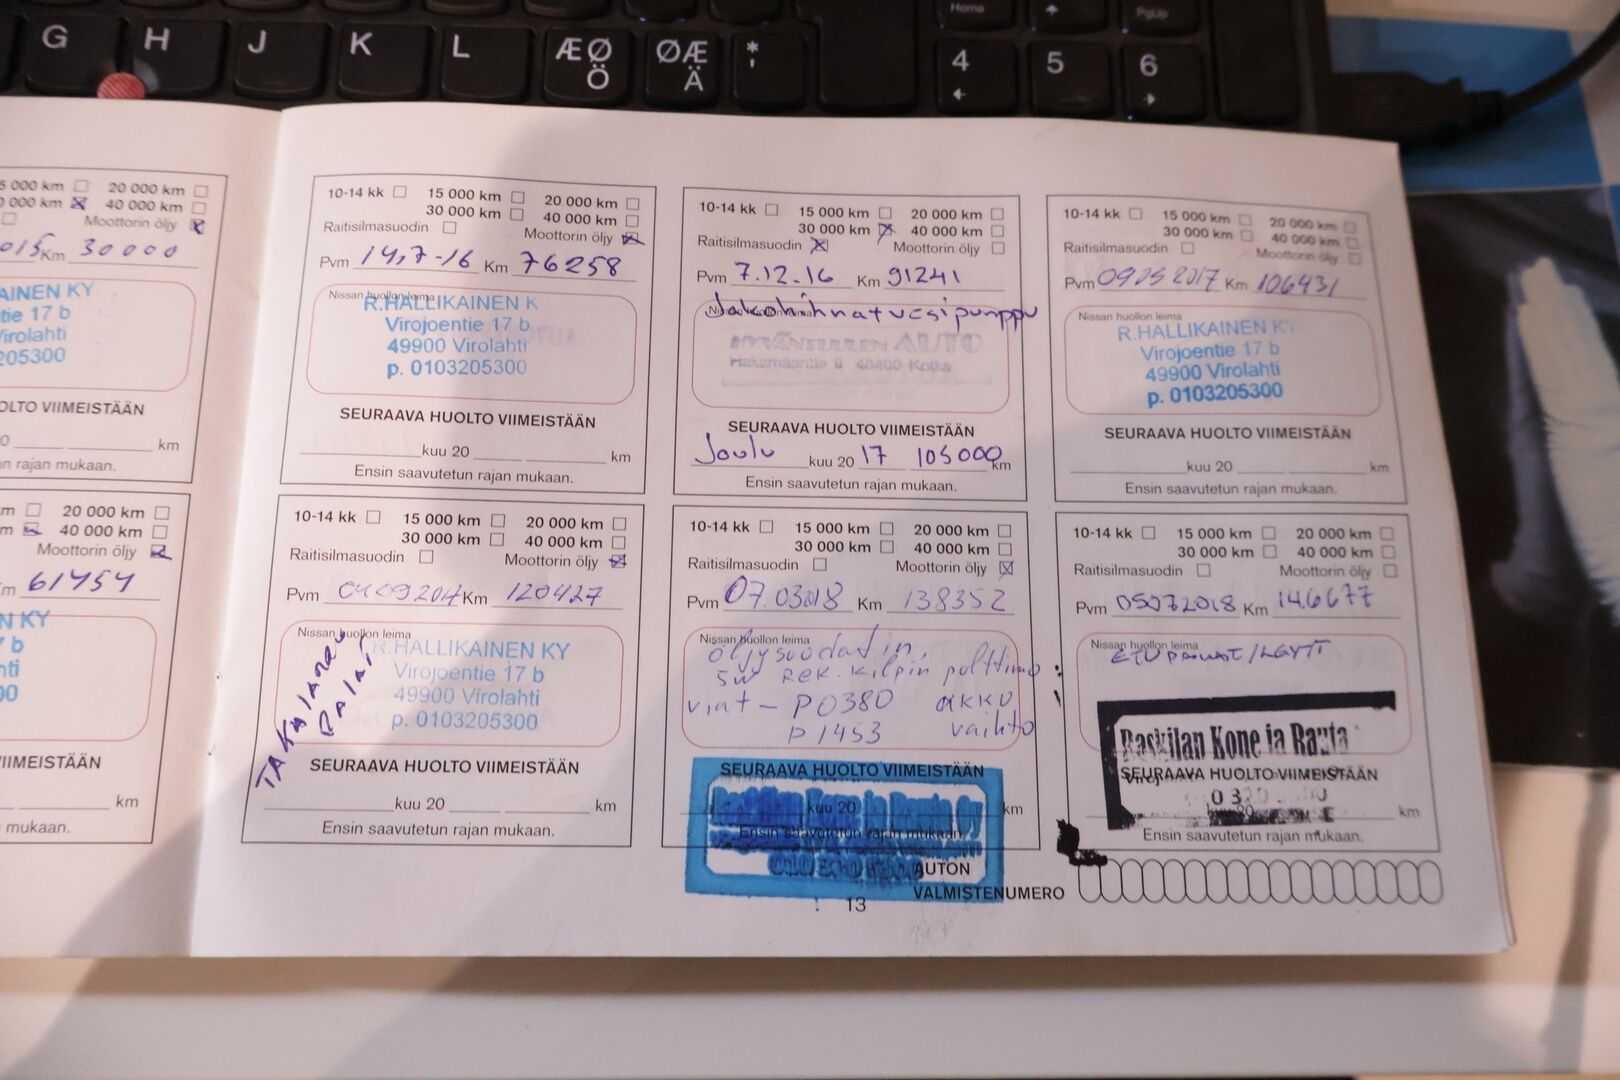 G H J K L ÆØ Ö ØÆ Ä * '
Home PgUp
4 5 6
5 000 km 20 000 km
0 000 km 40 000 km
Moottorin öljy
015 Km 30000
AINEN KY
tie 17 b
irolahti
205300
OLTO VIIMEISTÄÄN
0 km
n rajan mukaan.
m 20 000 km
m 40 000 km
Moottorin öljy
m 61454
N KY
7 b
hti
00
VIIMEISTÄÄN
km
n mukaan.
10-14 kk 15 000 km 20 000 km
30 000 km 40 000 km
Raitisilmasuodin Moottorin öljy
Pvm 14,7-16 Km 76258
Nissan huollon leima
R.HALLIKAINEN K
Virojoentie 17 b
49900 Virolahti
p. 0103205300
SEURAAVA HUOLTO VIIMEISTÄÄN
kuu 20 km
Ensin saavutetun rajan mukaan.
10-14 kk 15 000 km 20 000 km
30 000 km 40 000 km
Raitisilmasuodin Moottorin öljy
Pvm 7.12.16 Km 91241
Nissan huollon leima
Jakohihnat vesipumppu
AUTO
Hakamäentie 48400 Kotka
SEURAAVA HUOLTO VIIMEISTÄÄN
Joulu kuu 20 17 105000 km
Ensin saavutetun rajan mukaan.
10-14 kk 15 000 km 20 000 km
30 000 km 40 000 km
Raitisilmasuodin Moottorin öljy
Pvm 09052017 Km 106431
Nissan huollon leima
R.HALLIKAINEN KY
Virojoentie 17 b
49900 Virolahti
p. 0103205300
SEURAAVA HUOLTO VIIMEISTÄÄN
kuu 20 km
Ensin saavutetun rajan mukaan.
10-14 kk 15 000 km 20 000 km
30 000 km 40 000 km
Raitisilmasuodin Moottorin öljy
Pvm Km 120427
Nissan huollon leima
R.HALLIKAINEN KY
Virojoentie 17 b
49900 Virolahti
p. 0103205300
SEURAAVA HUOLTO VIIMEISTÄÄN
kuu 20 km
Ensin saavutetun rajan mukaan.
10-14 kk 15 000 km 20 000 km
30 000 km 40 000 km
Raitisilmasuodin Moottorin öljy
Pvm 07.03.18 Km 138352
Nissan huollon leima
öljysuodatin,
5w Rek.kilpin polttimo
viat - P0380 akku
P1453 vaihto
SEURAAVA HUOLTO VIIMEISTÄÄN
kuu 20 km
Ensin saavutetun rajan mukaan.
10-14 kk 15 000 km 20 000 km
30 000 km 40 000 km
Raitisilmasuodin Moottorin öljy
Pvm 05072018 Km 146677
Nissan huollon leima
ETUPALAT/
Raskilan Kone ja Rauta
SEURAAVA HUOLTO VIIMEISTÄÄN
km
Ensin saavutetun rajan mukaan.
AUTON
VALMISTENUMERO
13